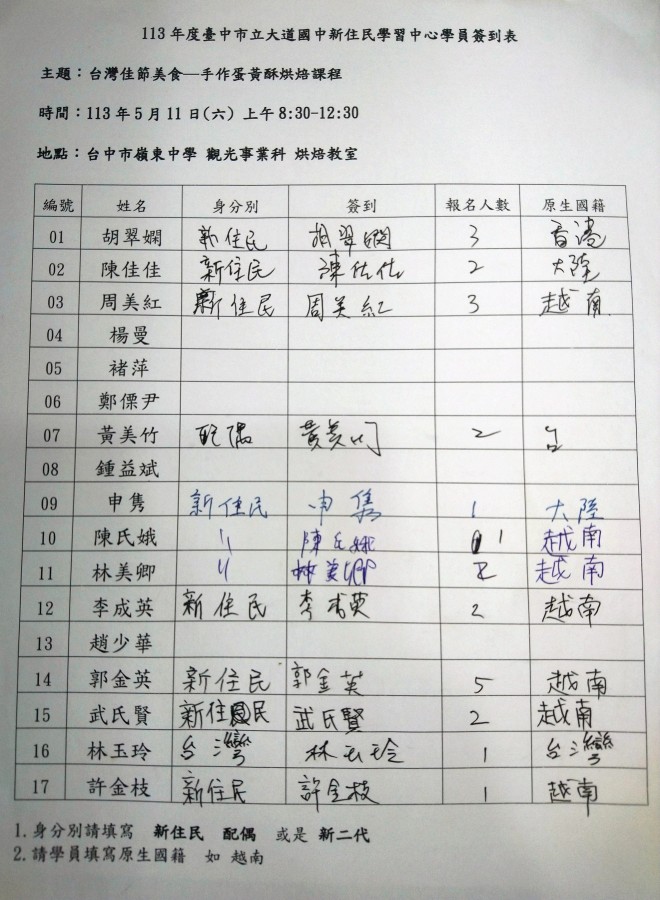 113 年度臺中市立大道國中新住民學習中心學員簽到表
主題：台灣佳節美食—手作蛋黃酥烘焙課程
時間：113 年 5 月 11 日(六) 上午 8:30-12:30
地點：台中市嶺東中學 觀光事業科 烘焙教室
編號 姓名 身分別 簽到 報名人數 原生國籍
01 胡翠嫻 新住民 胡翠嫻 3 香港
02 陳佳佳 新住民 陳佳佳 2 大陸
03 周美紅 新住民 周美紅 3 越南
04 楊曼
05 褚萍
06 鄭傈尹
07 黃美竹 配偶 黃美竹 2 台
08 鍾益斌
09 申雋 新住民 申雋 1 大陸
10 陳氏娥 〃 陳氏娥 1 越南
11 林美卿 〃 林美卿 2 越南
12 李成英 新住民 李成英 2 越南
13 趙少華
14 郭金英 新住民 郭金英 5 越南
15 武氏賢 新住民 武氏賢 2 越南
16 林玉玲 台灣 林玉玲 1 台灣
17 許金枝 新住民 許金枝 1 越南
1.身分別請填寫 新住民 配偶 或是 新二代
2.請學員填寫原生國籍 如 越南